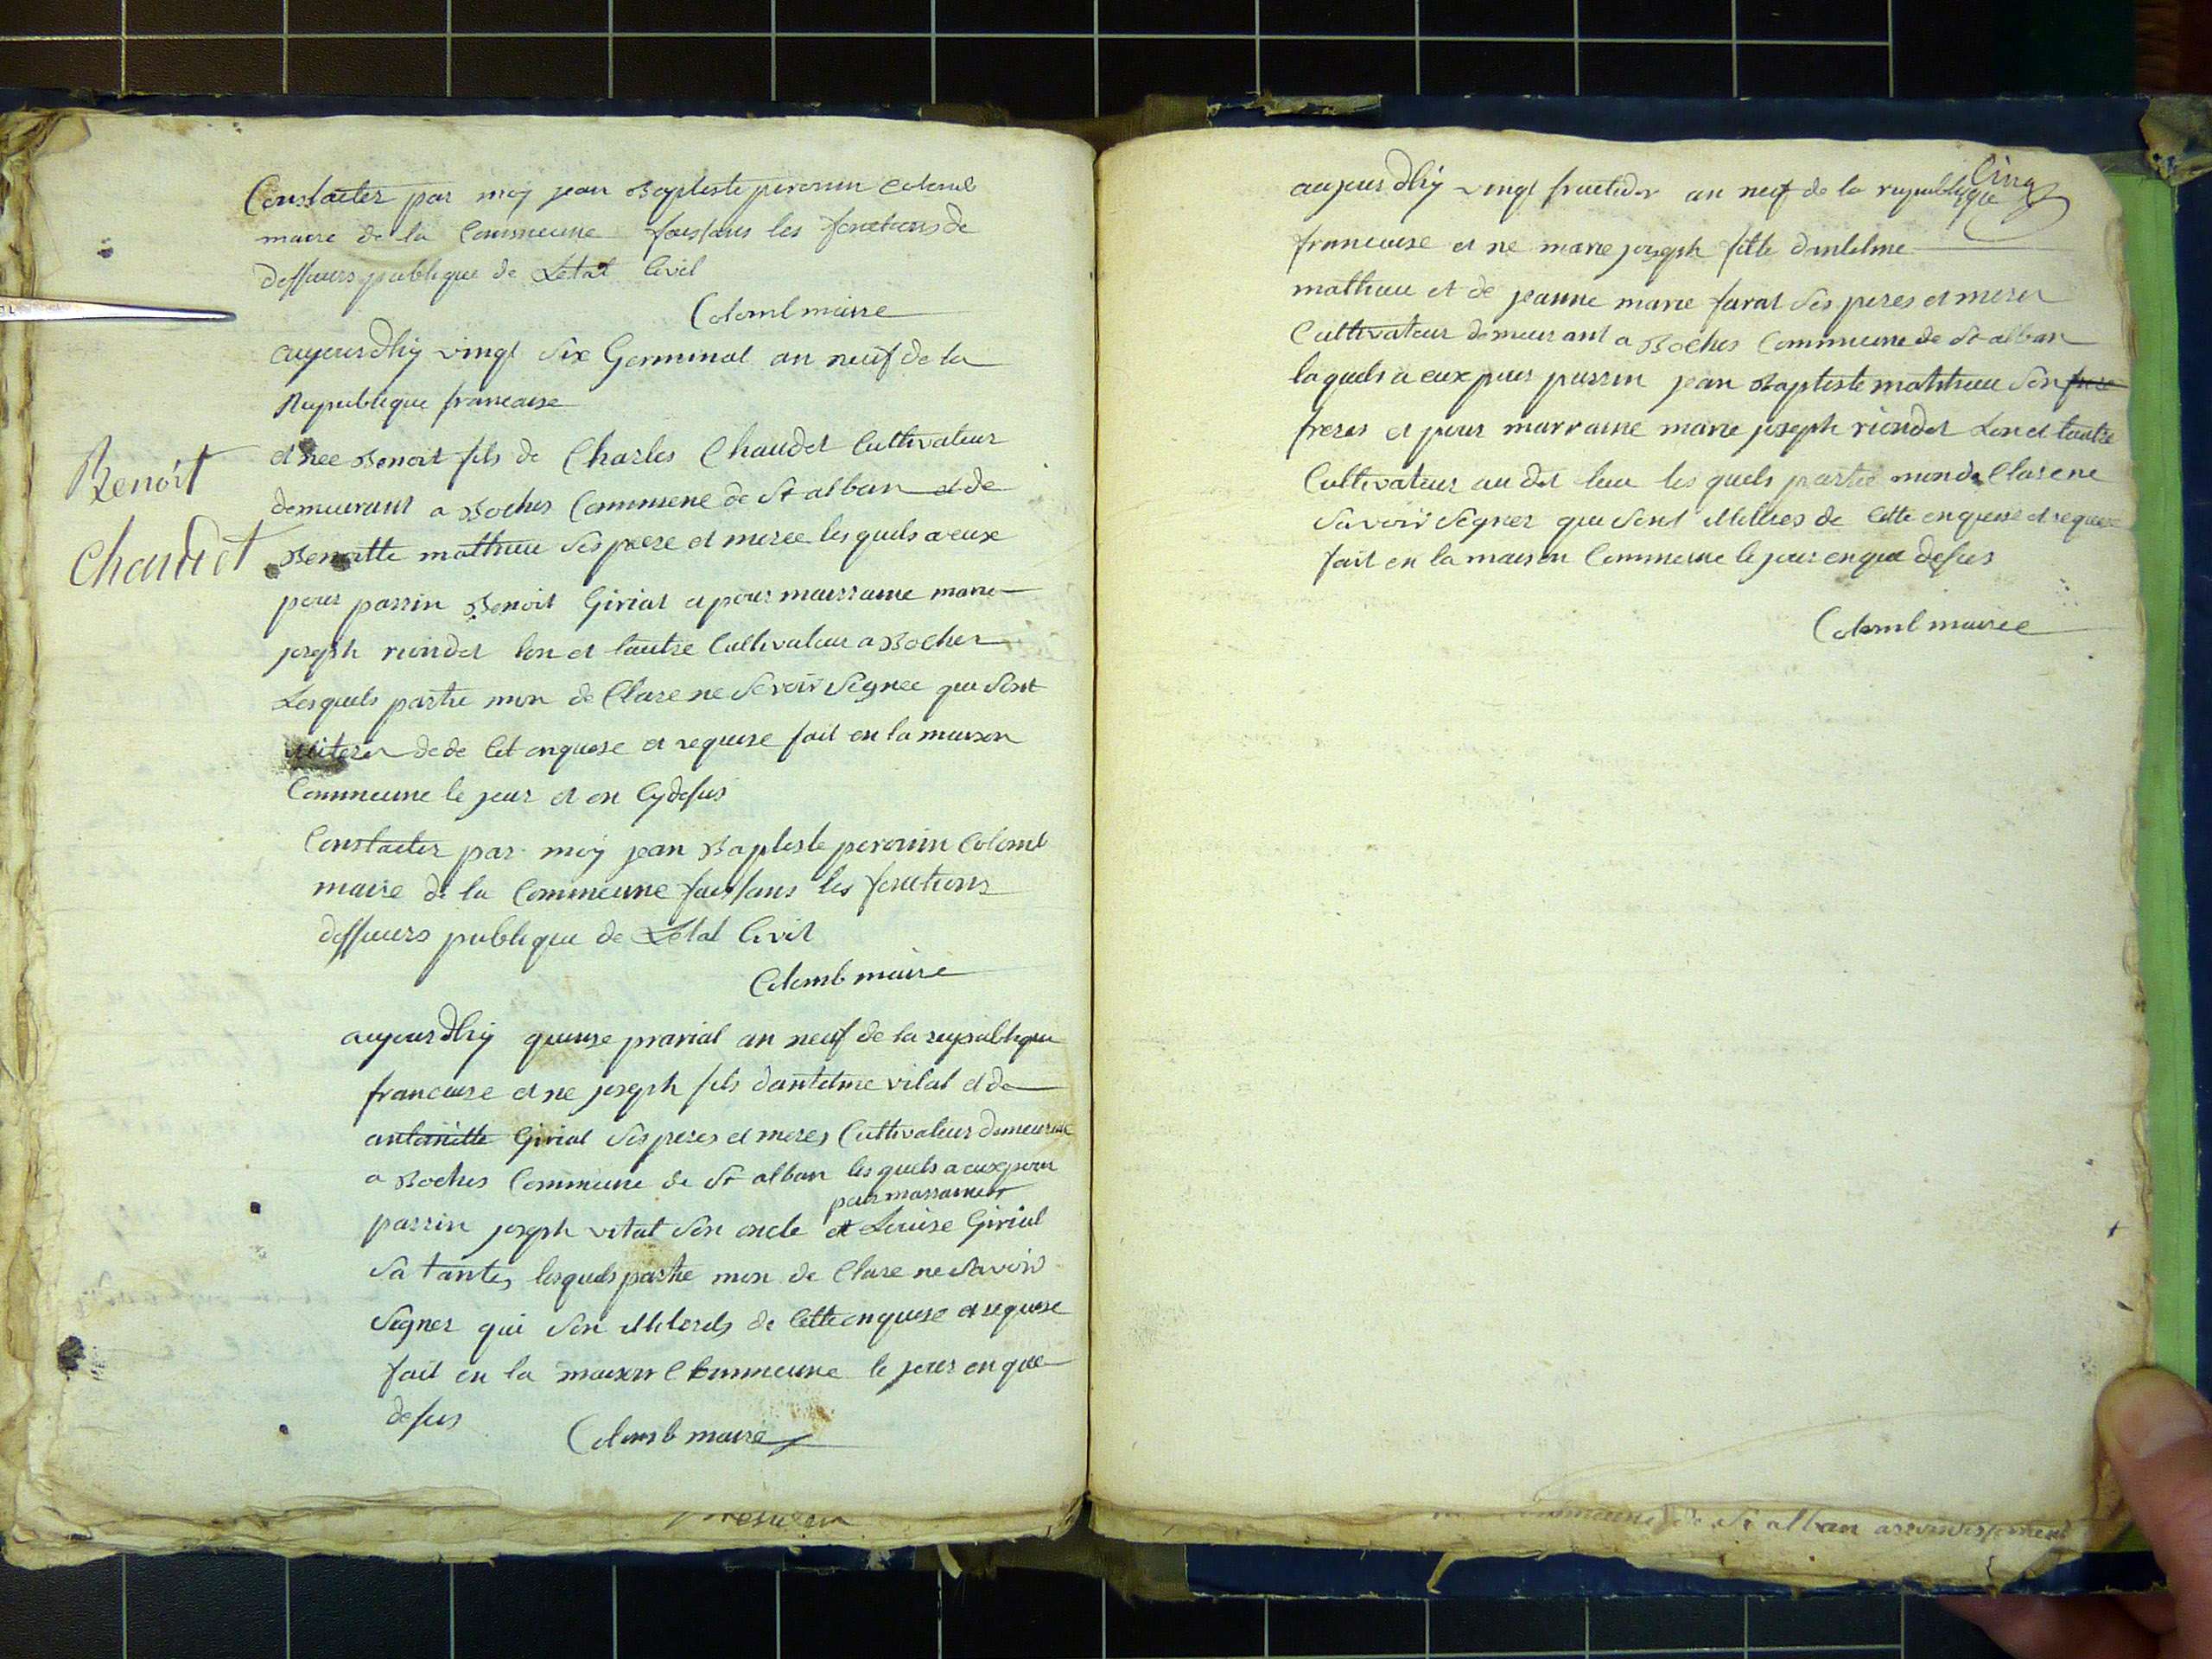 Constatter par moÿ jean Baptiste peronin Colomb
maire de la Commeune faissans les fonctions de
dofficiers publique de Letat Civil
Colomb maire
aujourdhÿ vingt Six Germinal an neuf de la
Republique francaise
et nee Benoit fils de Charles Chaudet Cultivateur
demeurant a Boches Commune de St alban et de
Benoitte mathieu Ses peere et meree les quels a eux
pour parrin Benoit Girial et pour marrainne marie
joseph riondet lon et lautre Cultivateur a Boches
Lesquels partie mon de Clare ne Savoir Signee que Sont
de de Cet enquese et requise fait en la maison
Commeune le jour et en Cÿ desus
Constatter par moÿ jean Baptiste peronin Colomb
maire de la Commeune faissans les fonctions
dofficiers publique de Letat Civil
Colomb maire
Benoit
Chaudet
aujourdhÿ quinse prarial an neuf de la republique
francaise et ne joseph fils dantelme vital et de
antoinette Girial Ses peres et meres Cultivateur demeurant
a Boches Commune de St alban les quels a eux pour
pour marrainne
parrin joseph vital Son oncle et Louise Girial
Sa tantes lesquels partie mon de Clare ne Savoir
Signer qui Son de Cette enquise et requise
fait en la maison Commeune le jour en que
desus
Colomb maire
Cinq
aujourdhÿ vingt fructidor an neuf de la republique
francaise et ne marie joseph fille dantelme
mathieu et de jeanne marie farat Ses peres et meres
Cultivateur demeurant a Boches Commeune de St alban
laquels a eux pour parrin jean Baptiste mathieu Son frere
freres et pour marraine marie joseph riondet Lon et lautre
Cultivateur au dit lieu les quels partie monde Clare ne
Savoir Signer que Sont de Cette enquise et requise
fait en la maison Commeune le jour en que desus
Colomb mairee
Commune de St alban arrondissement